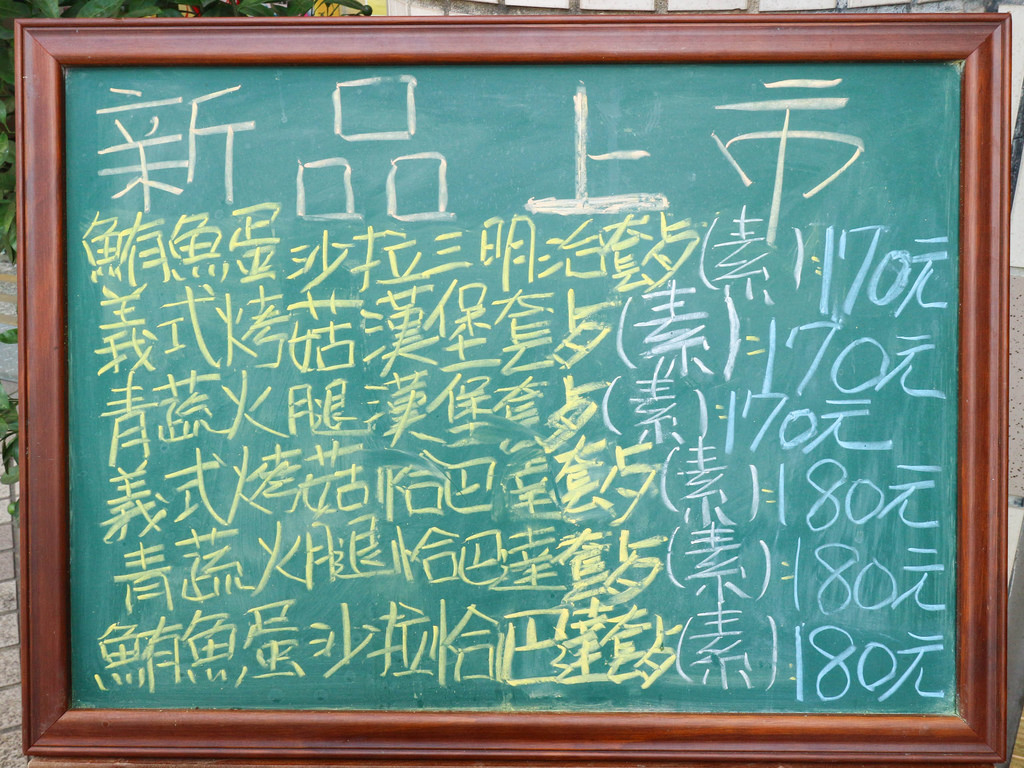 新品上市
鮪魚蛋沙拉三明治套点(素):170元
義式烤菇漢堡套点(素)=170元
青蔬火腿漢堡套点(素)=170元
義式烤菇恰巴達套点(素)=180元
青蔬火腿恰巴達套点(素)=180元
鮪魚蛋沙拉恰巴達套点(素)180元